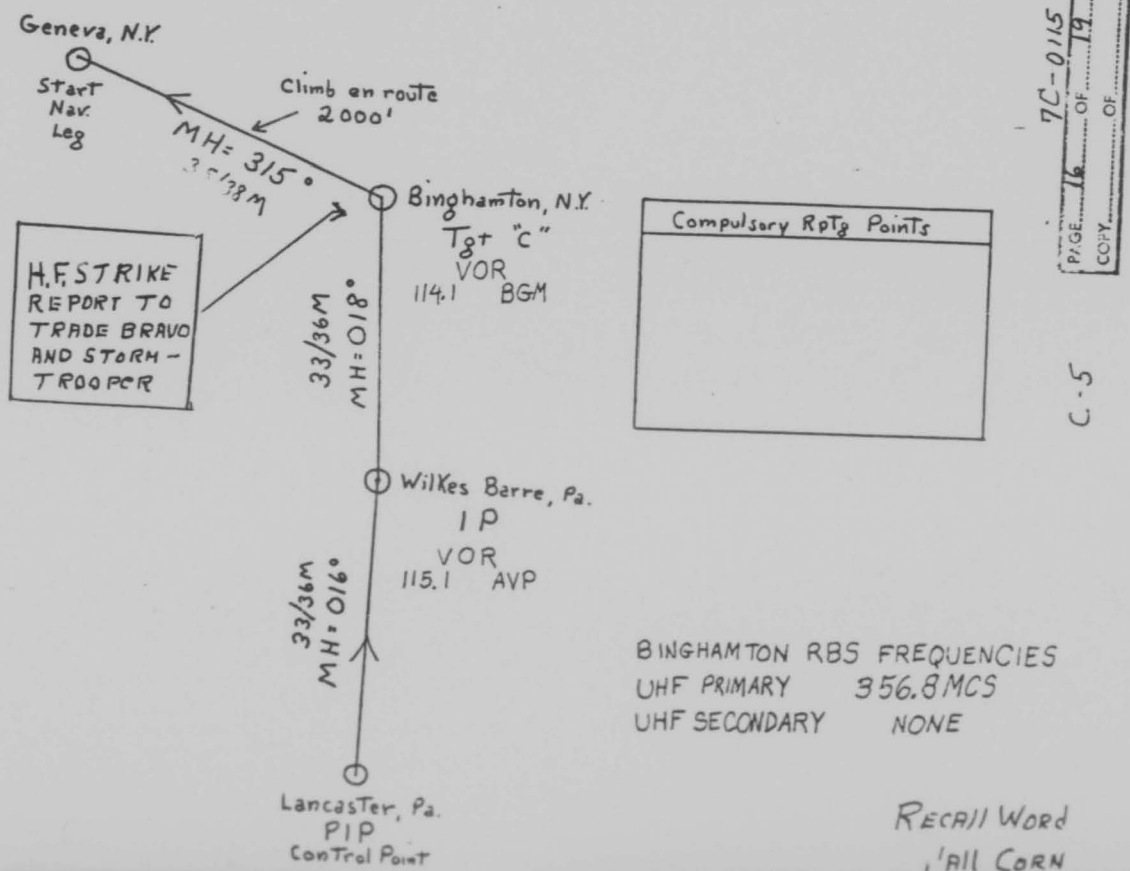 Geneva, N.Y.
Start
Nav.
Leg
Climb en route
2000'
MH= 315°
H.F. STRIKE
REPORT TO
TRADE BRAVO
AND STORM-
TROOPER
Binghamton, N.Y.
Tgt "C"
VOR
114.1 BGM
33/36M
MH=018°
Wilkes Barre, Pa.
IP
VOR
115.1 AVP
33/36M
MH=016°
Lancaster, Pa.
PIP
Control Point
Compulsory Rptg Points
BINGHAMTON RBS FREQUENCIES
UHF PRIMARY 356.8 MCS
UHF SECONDARY NONE
RECAll WORD
CORN
7C-0115
PAGE 16 OF 19
COPY OF
C-5